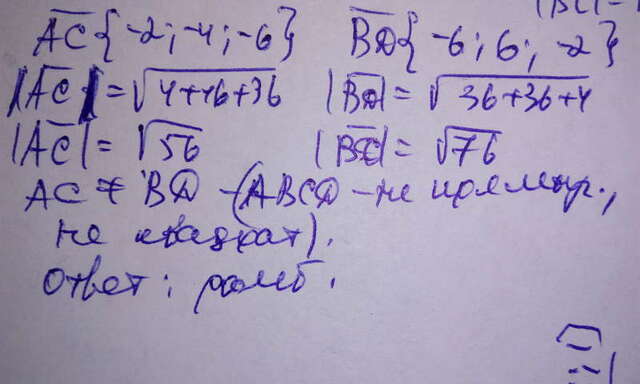 AC{-2;-4;-6} BD{-6;6;-2}
|AC|=√4+16+36 |BD|=√36+36+4
|AC|=√56 |BC|=√76
AC ≠ BD -(ABCD - не прямоуг.,
не квадрат).
Ответ: ромб.